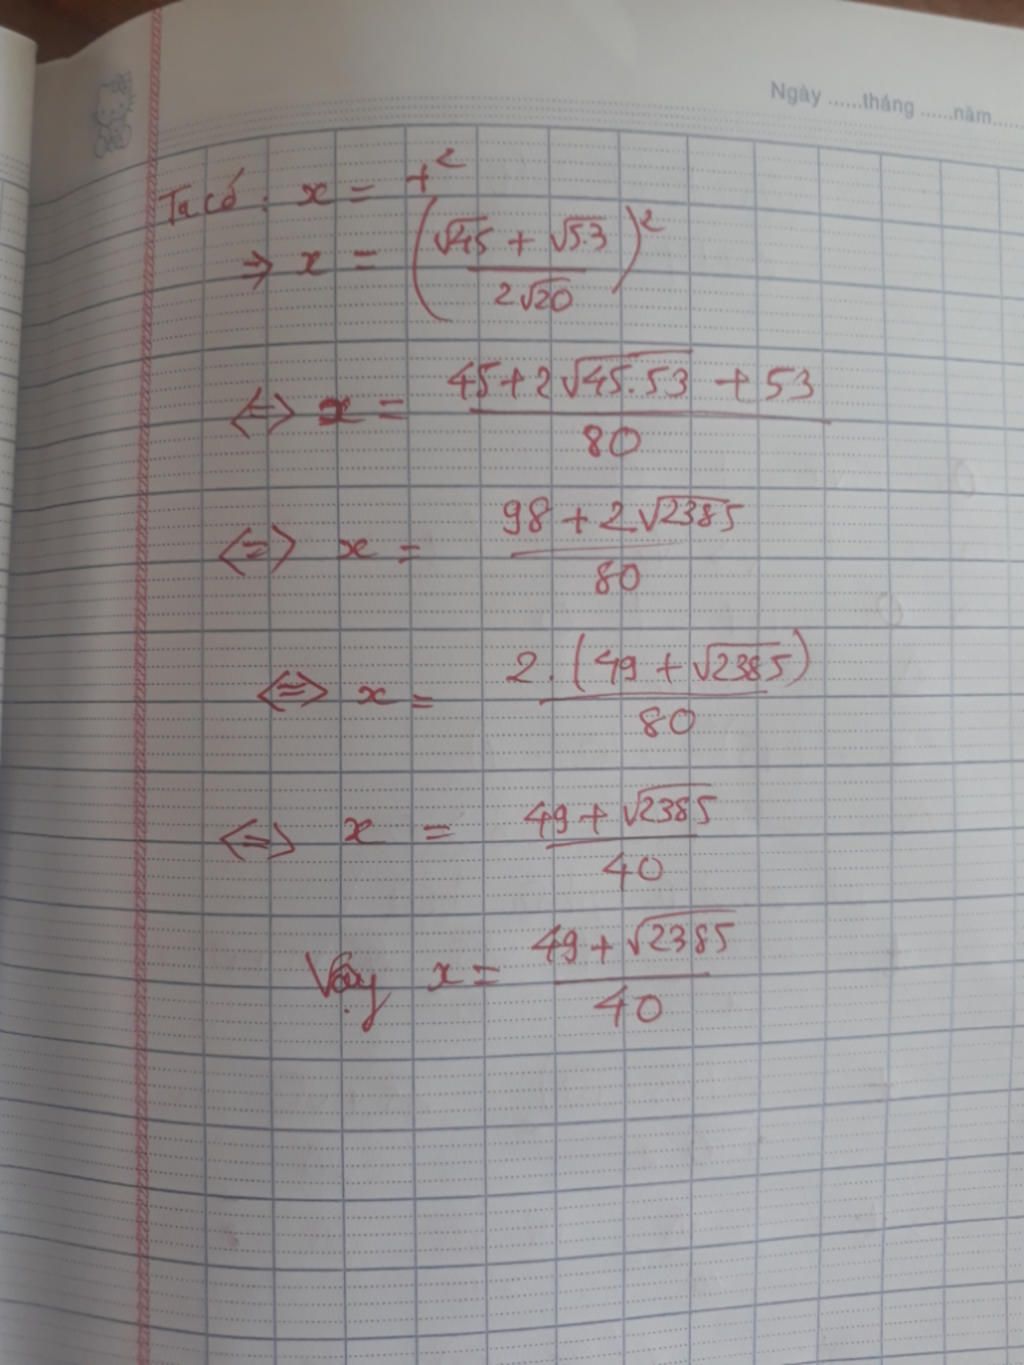 Ngày ......tháng ......năm......
Ta có : x = t²
⇒ x = ((√45 + √53)/(2√20))²
⇔ x = (45 + 2√(45.53) + 53)/80
⇔ x = (98 + 2√2385)/80
⇔ x = (2.(49 + √2385))/80
⇔ x = (49 + √2385)/40
Vậy x = (49 + √2385)/40